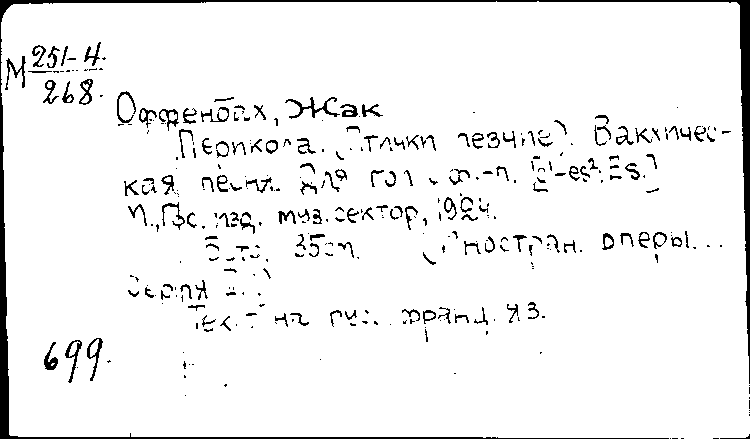 М 251-4
268.
Оффенбах, Жак
Перикола. (Птички певчие). Вакхичес-
кая песня. Для гол. с ф.-п. [c¹-es²; Es.]
М., Гос. изд. муз. сектор, 1924.
5 стр. 35 см. (Иностран. оперы...
Серия
Текст на рус. франц. яз.
699.